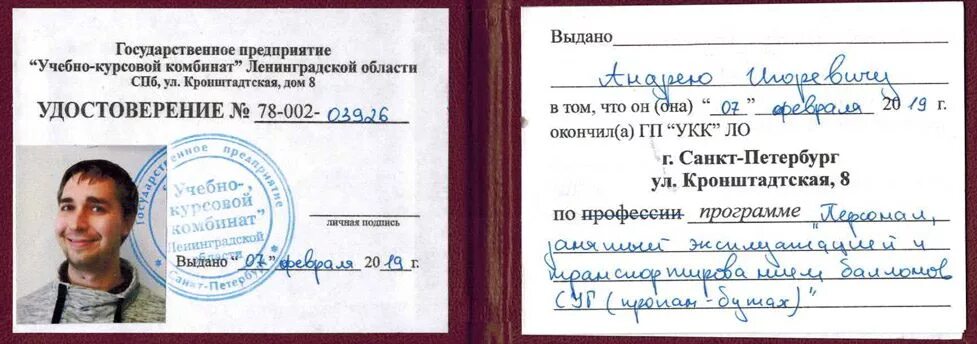 Государственное предприятие
"Учебно-курсовой комбинат" Ленинградской области
СПб, ул. Кронштадтская, дом 8
УДОСТОВЕРЕНИЕ № 78-002-03926
Государственное предприятие
"Учебно-
курсовой
комбинат"
Ленинградской
области
* Санкт-Петербург *
личная подпись
Выдано "07" февраля 2019 г.
Выдано
Андрею Игоревичу
в том, что он (она) "07" февраля 2019 г.
окончил(а) ГП "УКК" ЛО
г. Санкт-Петербург
ул. Кронштадтская, 8
по профессии программе "Персонал,
занятый эксплуатацией и
транспортированием баллонов
СУГ (пропан-бутан)"